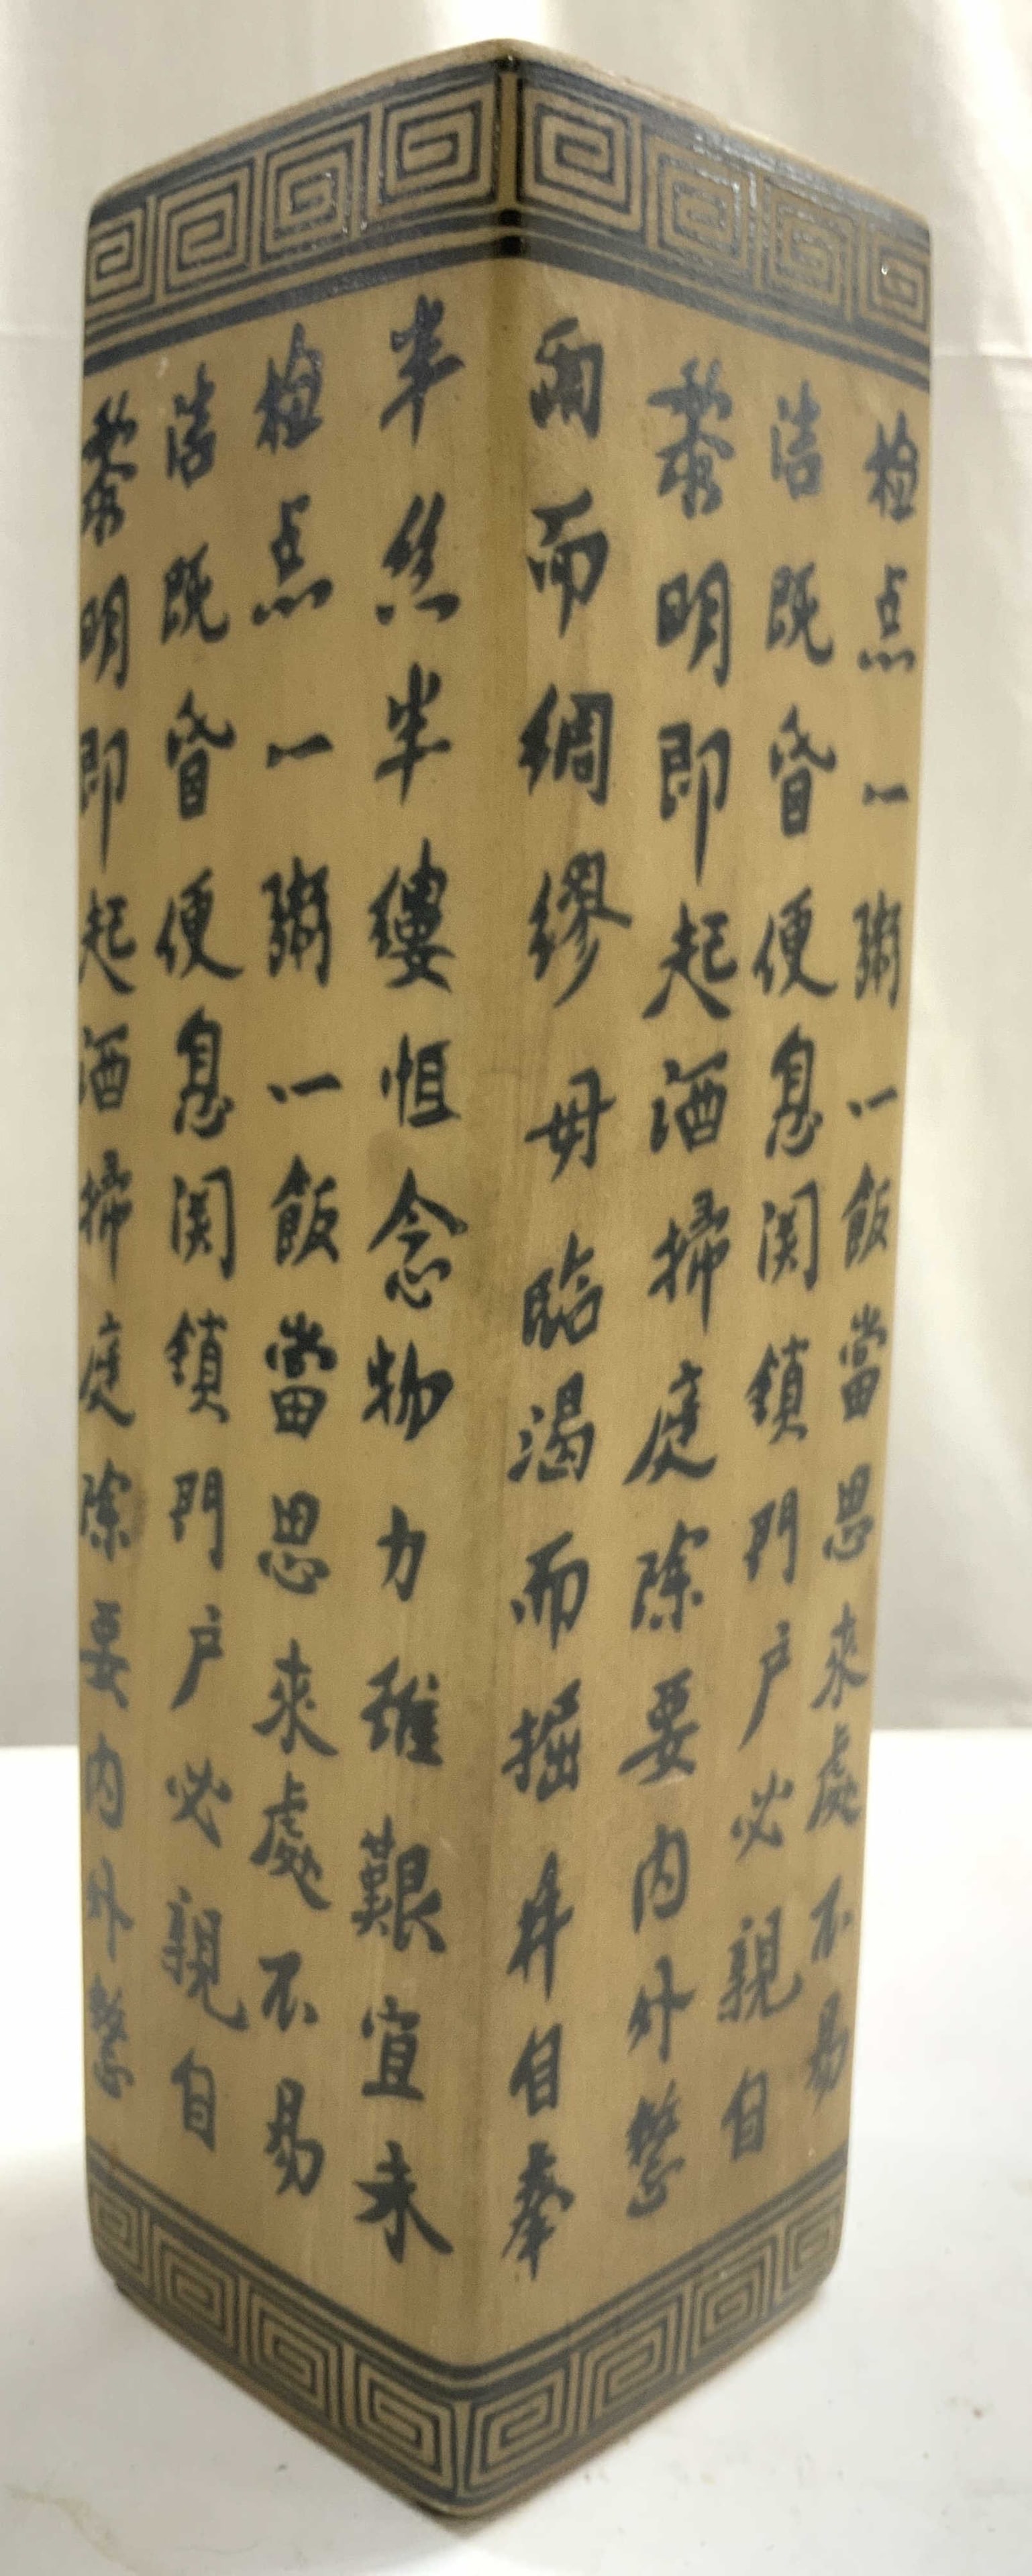 黎明即起洒掃庭除要内外整
洁既昏便息関鎖門户必親自
檢点一粥一飯當思來處不易
半絲半縷恒念物力維艱宜未
雨而綢繆毋臨渴而掘井自奉
黎明即起洒掃庭除要内外整
洁既昏便息関鎖門户必親自
檢点一粥一飯當思來處不易